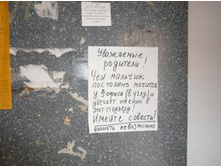 Уважаемые
родители!
Чей мальчик
постоянно мочится
у 3 офиса (в углу) и
убегает именно в
этот подъезд!
Имейте совесть!
дышать невозможно